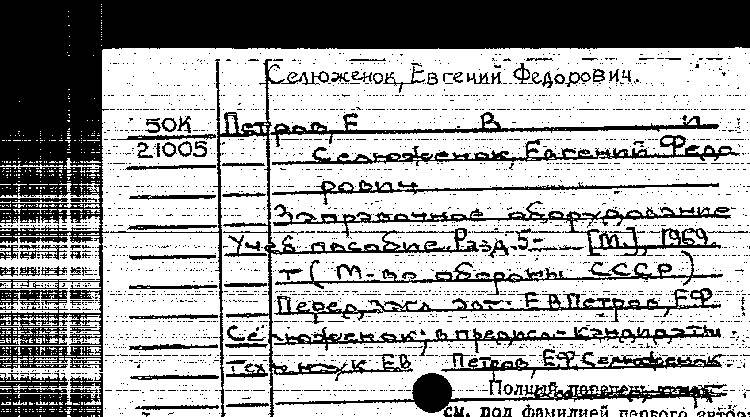 Селюженок, Евгений Федорович.
50К Петров, Е В и
21005 Селюженок, Евгений Федо
рович
Заправочное оборудование
Учеб пособие. Разд. 5- [М.], 1969.
т (М-во обороны СССР)
Перед загл авт: Е В Петров, Е Ф
Селюженок; в предисл - кандидаты
техн наук Е В Петров, Е Ф. Селюженок.
Полный
см. под фамилией первого автора